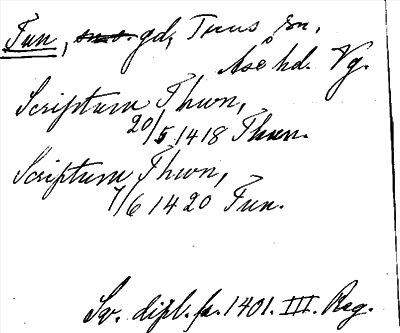 Tun, gd, Tuns sn,
Åse hd. Vg.
Scriptum Thwn,
20/5 1418 Thun.
Scriptum Thwn,
7/6 1420 Tun.
Sv. dipl. fr. 1401. III. Reg.